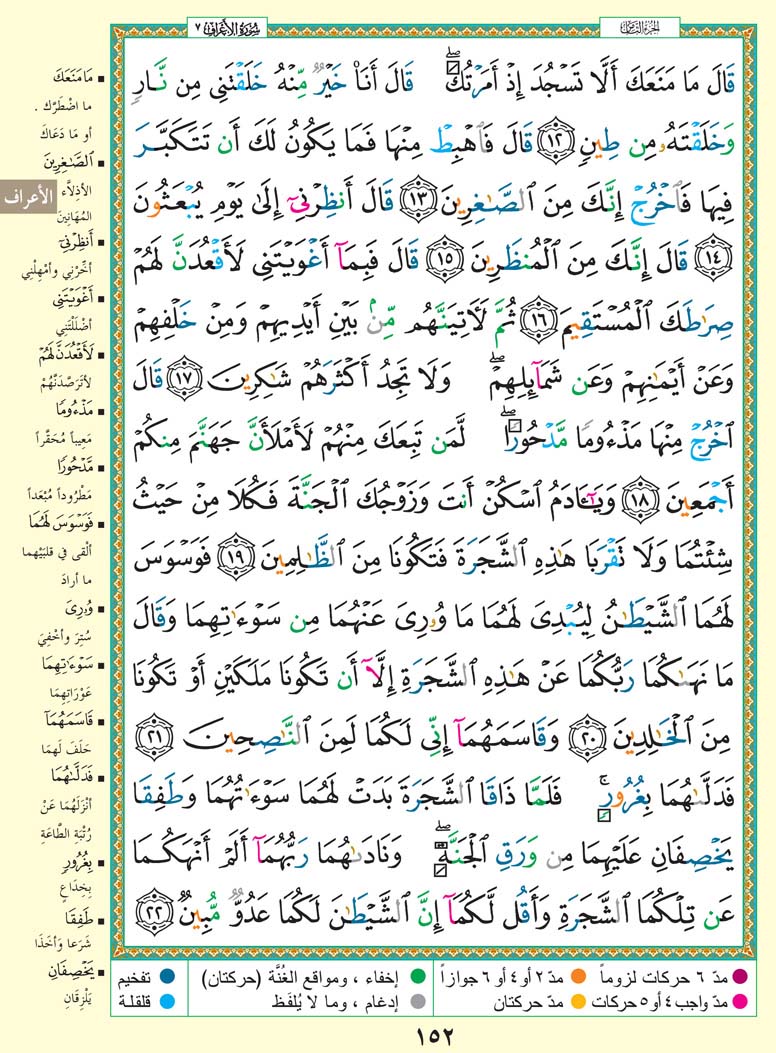 الجزء الثامن
سورة الأعراف ٧
قَالَ مَا مَنَعَكَ أَلَّا تَسْجُدَ إِذْ أَمَرْتُكَۖ قَالَ أَنَا۠ خَيْرٌ مِّنْهُ خَلَقْتَنِى مِن نَّارٍ
وَخَلَقْتَهُۥ مِن طِينٍ ١٢ قَالَ فَٱهْبِطْ مِنْهَا فَمَا يَكُونُ لَكَ أَن تَتَكَبَّرَ
فِيهَا فَٱخْرُجْ إِنَّكَ مِنَ ٱلصَّٰغِرِينَ ١٣ قَالَ أَنظِرْنِىٓ إِلَىٰ يَوْمِ يُبْعَثُونَ
١٤ قَالَ إِنَّكَ مِنَ ٱلْمُنظَرِينَ ١٥ قَالَ فَبِمَآ أَغْوَيْتَنِى لَأَقْعُدَنَّ لَهُمْ
صِرَٰطَكَ ٱلْمُسْتَقِيمَ ١٦ ثُمَّ لَءَاتِيَنَّهُم مِّنۢ بَيْنِ أَيْدِيهِمْ وَمِنْ خَلْفِهِمْ
وَعَنْ أَيْمَٰنِهِمْ وَعَن شَمَآئِلِهِمْۖ وَلَا تَجِدُ أَكْثَرَهُمْ شَٰكِرِينَ ١٧ قَالَ
ٱخْرُجْ مِنْهَا مَذْءُومًا مَّدْحُورًاۖ لَّمَن تَبِعَكَ مِنْهُمْ لَأَمْلَأَنَّ جَهَنَّمَ مِنكُمْ
أَجْمَعِينَ ١٨ وَيَٰٓـَٔادَمُ ٱسْكُنْ أَنتَ وَزَوْجُكَ ٱلْجَنَّةَ فَكُلَا مِنْ حَيْثُ
شِئْتُمَا وَلَا تَقْرَبَا هَٰذِهِ ٱلشَّجَرَةَ فَتَكُونَا مِنَ ٱلظَّٰلِمِينَ ١٩ فَوَسْوَسَ
لَهُمَا ٱلشَّيْطَٰنُ لِيُبْدِىَ لَهُمَا مَا وُۥرِىَ عَنْهُمَا مِن سَوْءَٰتِهِمَا وَقَالَ
مَا نَهَىٰكُمَا رَبُّكُمَا عَنْ هَٰذِهِ ٱلشَّجَرَةِ إِلَّآ أَن تَكُونَا مَلَكَيْنِ أَوْ تَكُونَا
مِنَ ٱلْخَٰلِدِينَ ٢٠ وَقَاسَمَهُمَآ إِنِّى لَكُمَا لَمِنَ ٱلنَّٰصِحِينَ ٢١
فَدَلَّىٰهُمَا بِغُرُورٍۚ فَلَمَّا ذَاقَا ٱلشَّجَرَةَ بَدَتْ لَهُمَا سَوْءَٰتُهُمَا وَطَفِقَا
يَخْصِفَانِ عَلَيْهِمَا مِن وَرَقِ ٱلْجَنَّةِۖ وَنَادَىٰهُمَا رَبُّهُمَآ أَلَمْ أَنْهَكُمَا
عَن تِلْكُمَا ٱلشَّجَرَةِ وَأَقُل لَّكُمَآ إِنَّ ٱلشَّيْطَٰنَ لَكُمَا عَدُوٌّ مُّبِينٌ ٢٢
مَا مَنَعَكَ
ما اضْطَرَّك .
أو مَا دَعَاكَ
ٱلصَّٰغِرِينَ
الأذِلَّاءِ
المُهَانِينَ
الأعراف
أَنظِرْنِىٓ
أخِّرْني وأمْهِلْنِي
أَغْوَيْتَنِى
أضْلَلْتَنِي
لَأَقْعُدَنَّ لَهُمْ
لأتَرَصَّدَنَّهُمْ
مَذْءُومًا
مَعِيباً مُحَقَّراً
مَّدْحُورًا
مَطْرُوداً مُبْعَداً
فَوَسْوَسَ لَهُمَا
ألْقى في قلبَيْهِما
ما أرادَ
وُۥرِىَ
سُتِرَ وأُخْفِيَ
سَوْءَٰتِهِمَا
عَوْرَاتِهِمَا
قَاسَمَهُمَآ
حَلَفَ لَهما
فَدَلَّىٰهُمَا
أنْزَلَهُمَا عَنْ
رُتْبَةِ الطَّاعَةِ
بِغُرُورٍ
بِخِدَاعٍ
طَفِقَا
شَرَعا وأخَذَا
يَخْصِفَانِ
يَلْزِقَانِ
مدّ ٦ حركات لزوماً
مدّ ٢ أو ٤ أو ٦ جوازاً
إخفاء ، ومواقع الغُنَّة (حركتان)
تفخيم
مدّ واجب ٤ أو ٥ حركات
مدّ حركتان
إدغام ، وما لا يُلفَظ
قلقلة
١٥٢